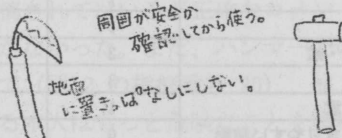 周囲が安全か
確認してから使う。
地面
に置きっぱなしにしない。